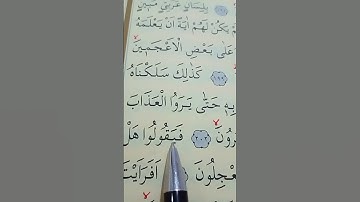 بِلِسَانٍ عَرَبِيٍّ مُبِينٍ
يَكُنْ لَهُمْ اٰيَةً اَنْ يَعْلَمَهُ
عَلٰى بَعْضِ الْاَعْجَمِينَ
١٩٩ كَذٰلِكَ سَلَكْنَاهُ
بِهِ حَتّٰى يَرَوُا الْعَذَابَ
رُونَ ٢٠٢ فَيَقُولُوا هَلْ
عْجِلُونَ اَفَرَاَيْتَ